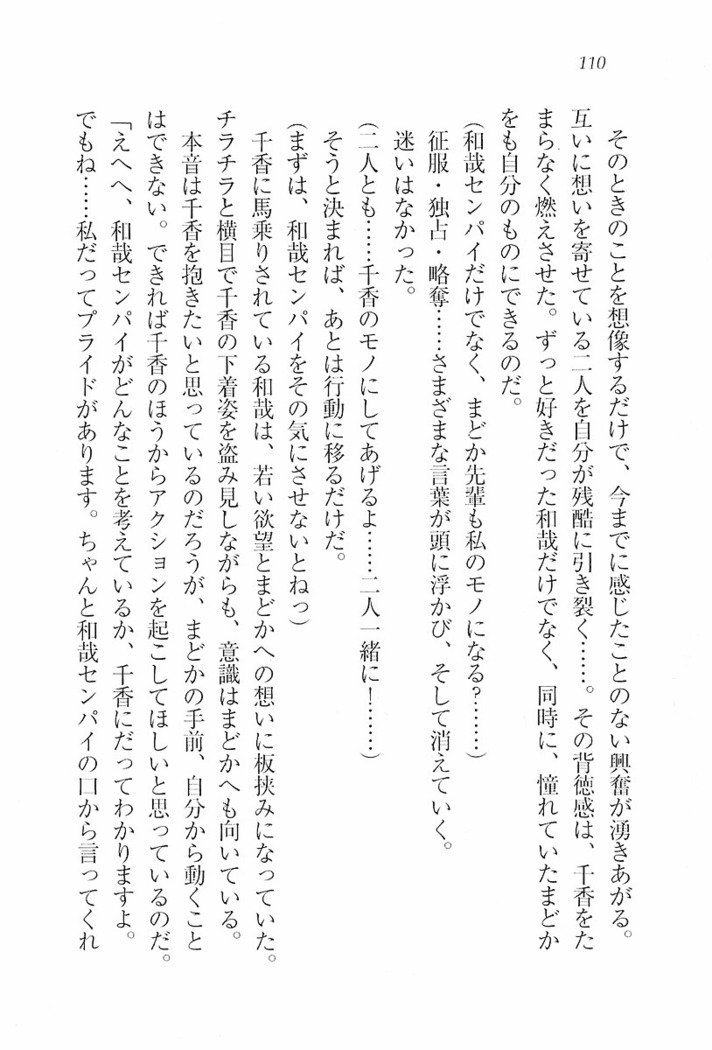 110
そのときのことを想像するだけで、今までに感じたことのない興奮が湧きあがる。
互いに想いを寄せている二人を自分が残酷に引き裂く……。その背徳感は、千香をた
まらなく燃えさせた。ずっと好きだった和哉だけでなく、同時に、憧れていたまどか
をも自分のものにできるのだ。
(和哉センパイだけでなく、まどか先輩も私のモノになる?………)
征服・独占・略奪……さまざまな言葉が頭に浮かび、そして消えていく。
迷いはなかった。
(二人とも……千香のモノにしてあげるよ……二人一緒に!………)
そうと決まれば、あとは行動に移るだけだ。
(まずは、和哉センパイをその気にさせないとねっ)
千香に馬乗りされている和哉は、若い欲望とまどかへの想いに板挟みになっていた。
チラチラと横目で千香の下着姿を盗み見しながらも、意識はまどかへも向いている。
本音は千香を抱きたいと思っているのだろうが、まどかの手前、自分から動くこと
はできない。できれば千香のほうからアクションを起こしてほしいと思っているのだ。
「えへへ、和哉センパイがどんなことを考えているか、千香にだってわかりますよ。
でもね……私だってプライドがあります。ちゃんと和哉センパイの口から言ってくれ